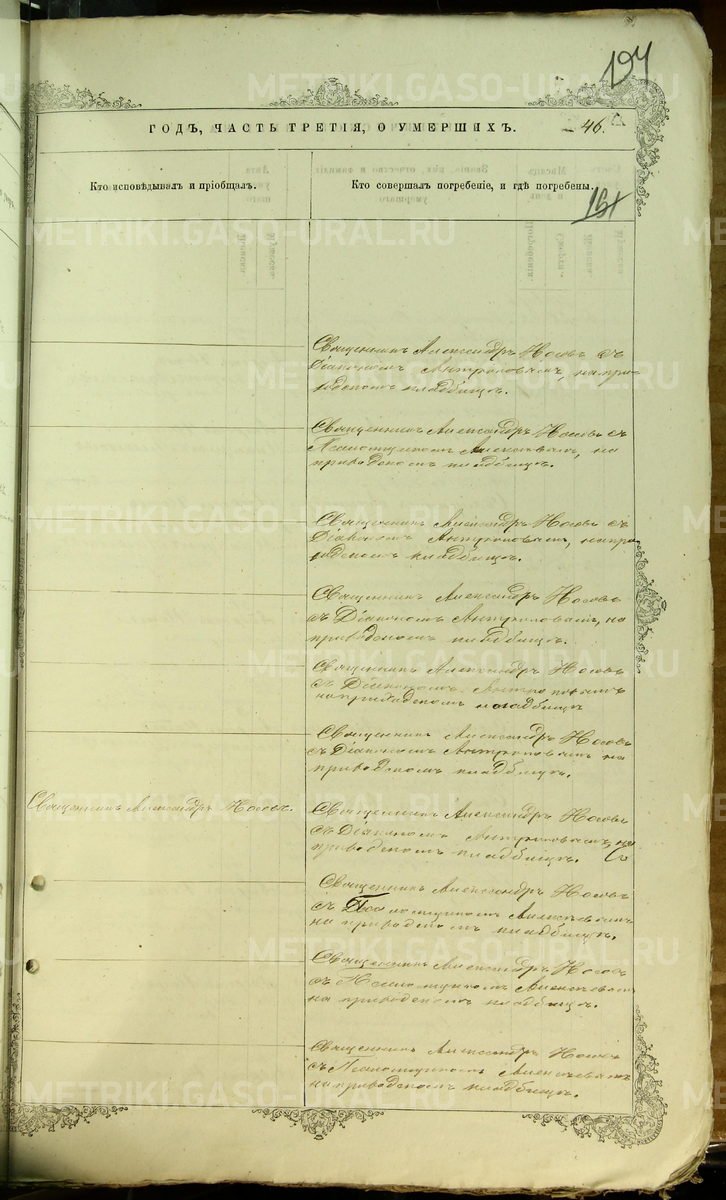 194
ГОДЪ, ЧАСТЬ ТРЕТІЯ, О УМЕРШИХЪ.
46.
Кто исповѣдывалъ и пріобщалъ.
Кто совершалъ погребеніе, и гдѣ погребены.
Священникъ Александръ Носовъ съ
Діакономъ Антроповымъ, на при-
ходскомъ кладбищѣ.
Священникъ Александръ Носовъ съ
Псаломщикомъ Алексѣевымъ, на
приходскомъ кладбищѣ.
Священникъ Александръ Носовъ съ
Діакономъ Антроповымъ, на при-
ходскомъ кладбищѣ.
Священникъ Александръ Носовъ
съ Діакономъ Антроповымъ, на
приходскомъ кладбищѣ.
Священникъ Александръ Носовъ
съ Діакономъ Антроповымъ
на приходскомъ кладбищѣ
Священникъ Александръ Носовъ
съ Діакономъ Антроповымъ на
приходскомъ кладбищѣ.
Священникъ Александръ Носовъ.
Священникъ Александръ Носовъ
съ Діакономъ Антроповымъ, на
приходскомъ кладбищѣ.
Священникъ Александръ Носовъ
съ Псаломщикомъ Алексѣевымъ
на приходскомъ кладбищѣ.
Священникъ Александръ Носовъ
съ Псаломщикомъ Алексѣевымъ
на приходскомъ кладбищѣ.
Священникъ Александръ Носовъ
съ Псаломщикомъ Алексѣевымъ
на приходскомъ кладбищѣ.
METRIKI.GASO-URAL.RU